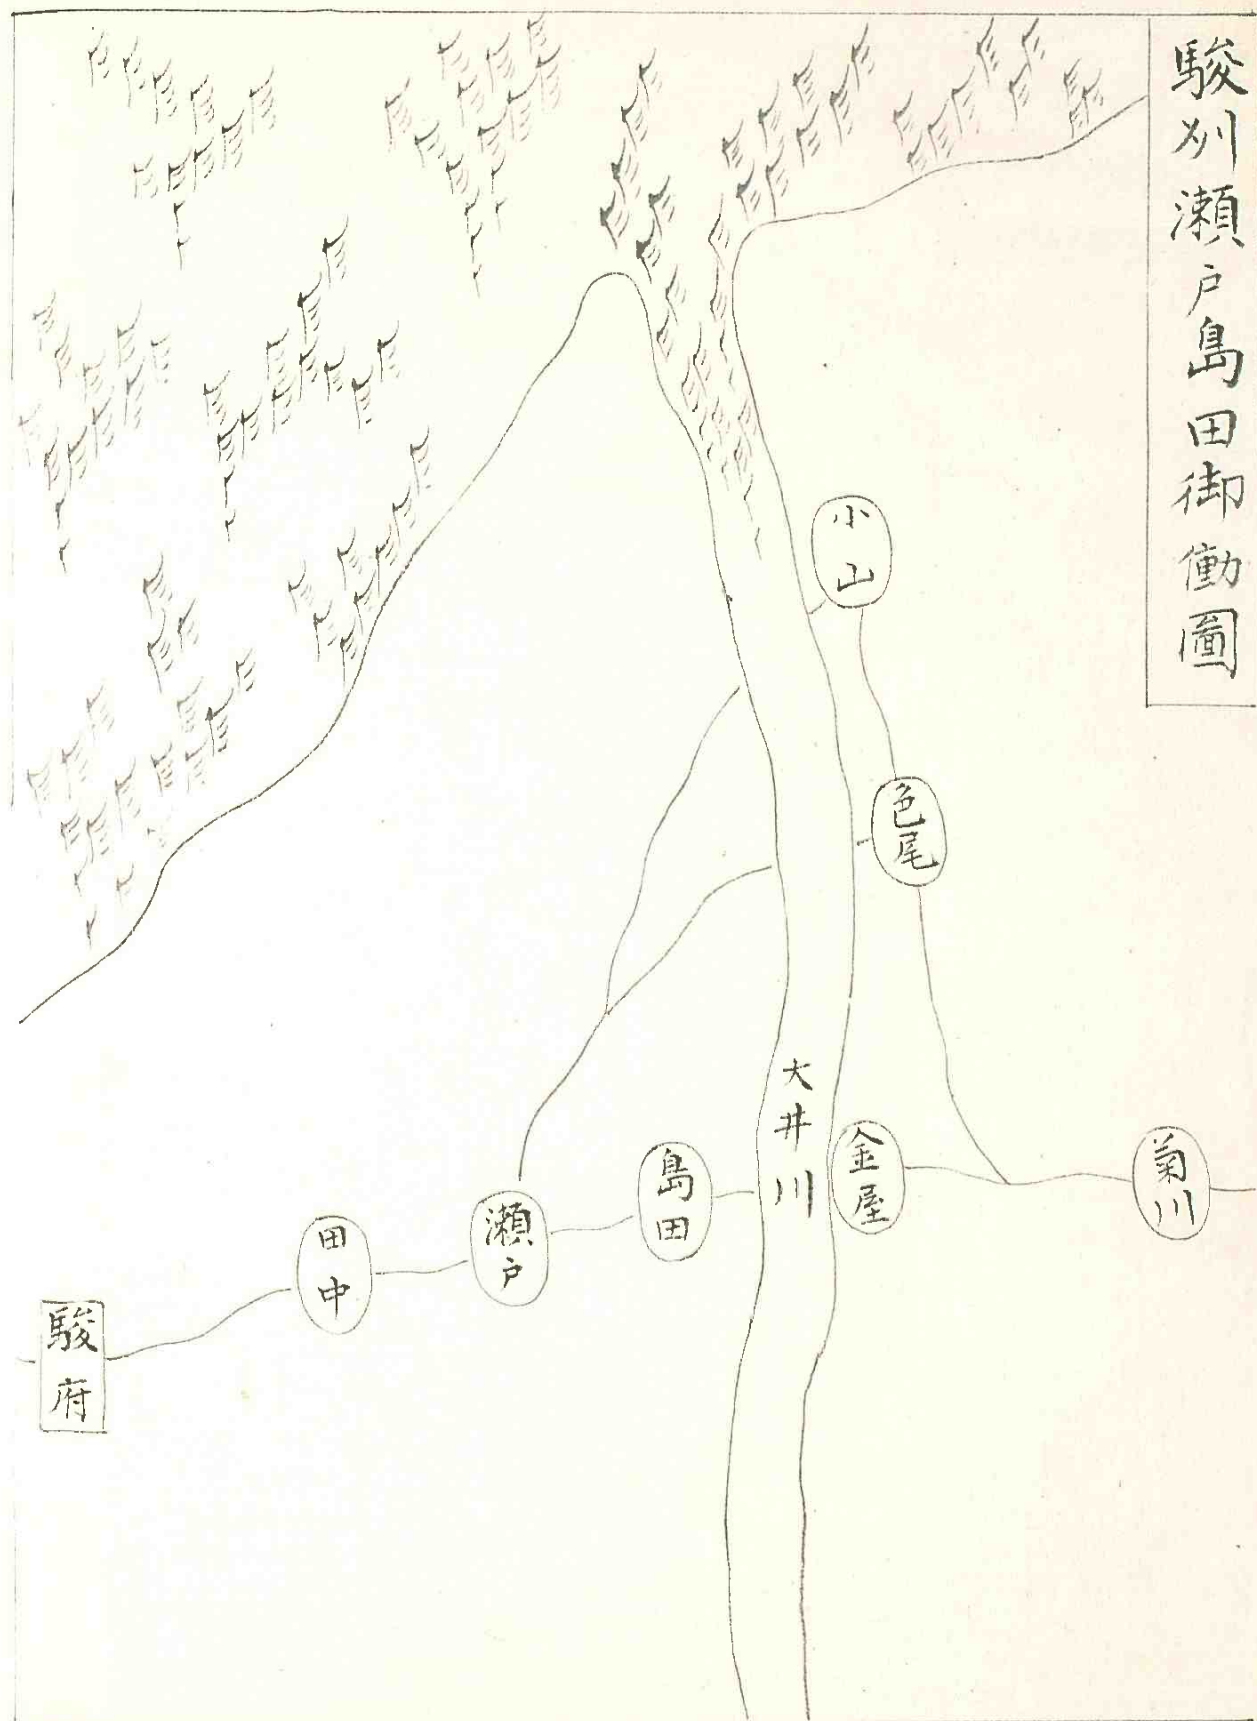 駿州瀬戸島田御働圖
小山
色尾
大井川
金屋
菊川
島田
瀬戸
田中
駿府